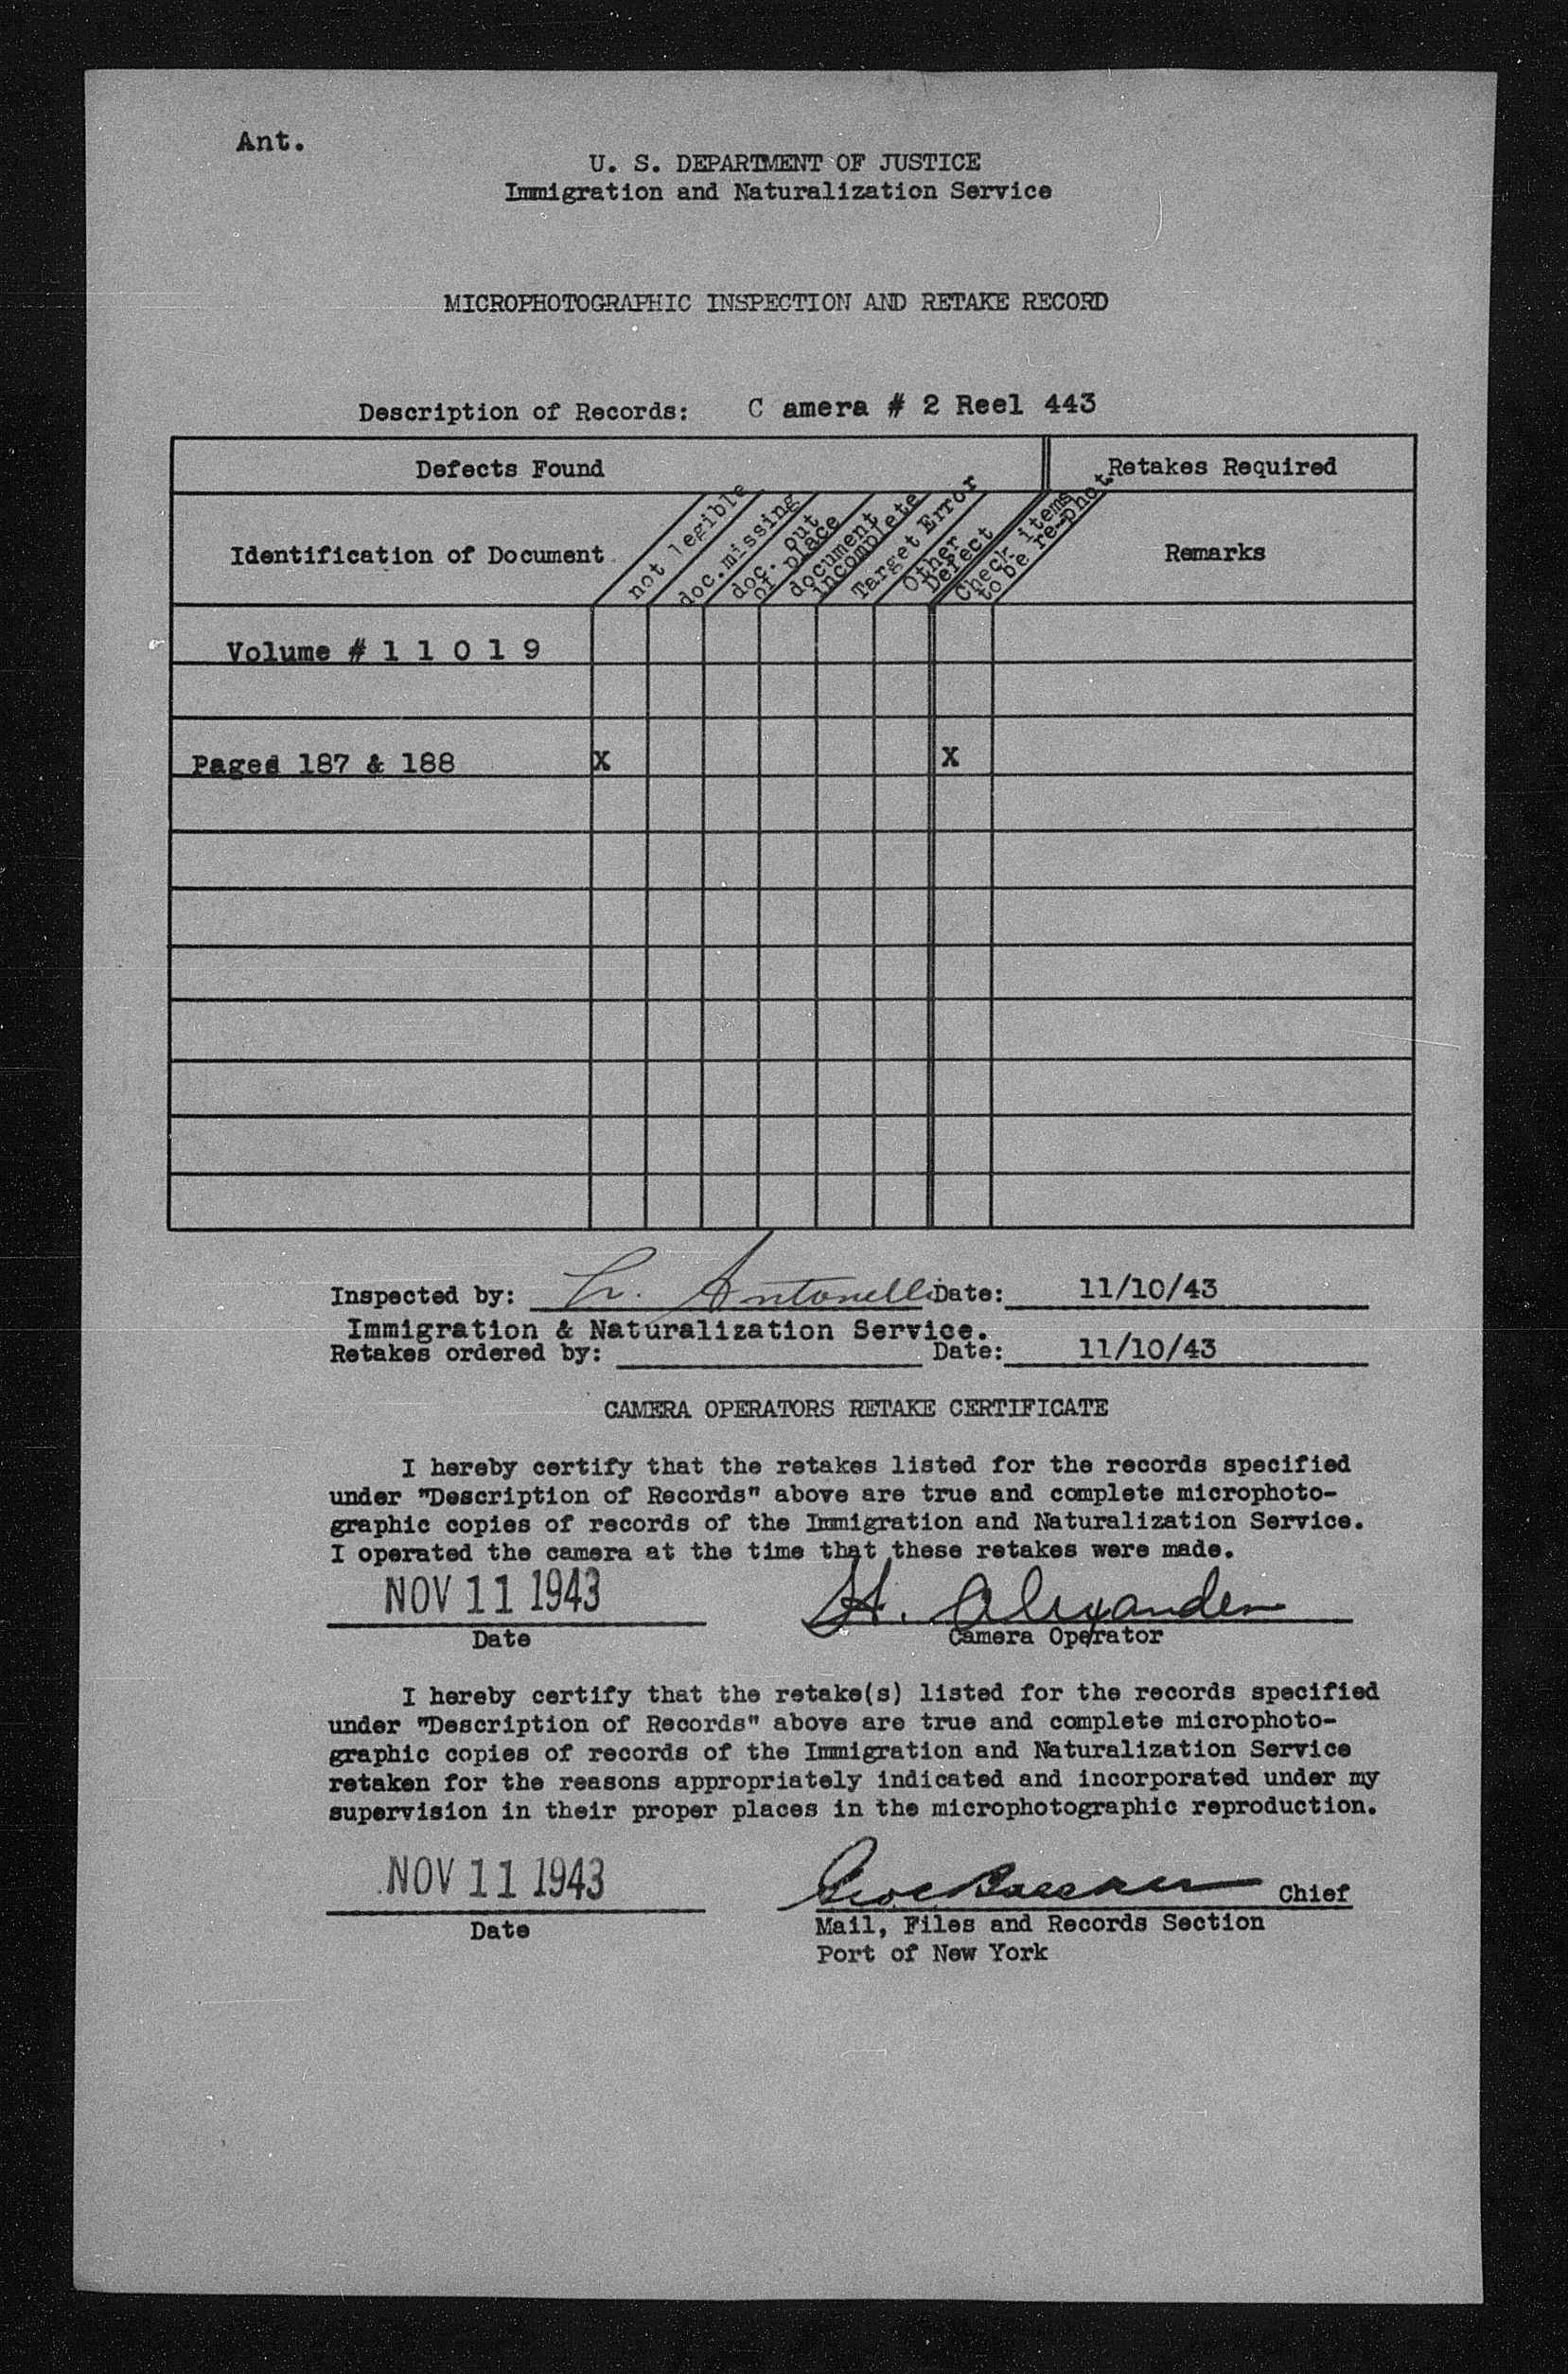 Ant.
U. S. DEPARTMENT OF JUSTICE
Immigration and Naturalization Service
MICROPHOTOGRAPHIC INSPECTION AND RETAKE RECORD
Description of Records: C amera # 2 Reel 443
Defects Found
Retakes Required
Identification of Document
not legible
doc. missing
doc. out
of place
document
incomplete
Target Error
Other
Defect
Check items
to be re-phot.
Remarks
Volume # 1 1 0 1 9
Pages 187 & 188 X X
Inspected by: Antonelli Date: 11/10/43
Immigration & Naturalization Service.
Retakes ordered by: Date: 11/10/43
CAMERA OPERATORS RETAKE CERTIFICATE
I hereby certify that the retakes listed for the records specified
under "Description of Records" above are true and complete microphoto-
graphic copies of records of the Immigration and Naturalization Service.
I operated the camera at the time that these retakes were made.
NOV 11 1943 H. Alexander
Date Camera Operator
I hereby certify that the retake(s) listed for the records specified
under "Description of Records" above are true and complete microphoto-
graphic copies of records of the Immigration and Naturalization Service
retaken for the reasons appropriately indicated and incorporated under my
supervision in their proper places in the microphotographic reproduction.
NOV 11 1943 Chief
Date Mail, Files and Records Section
Port of New York